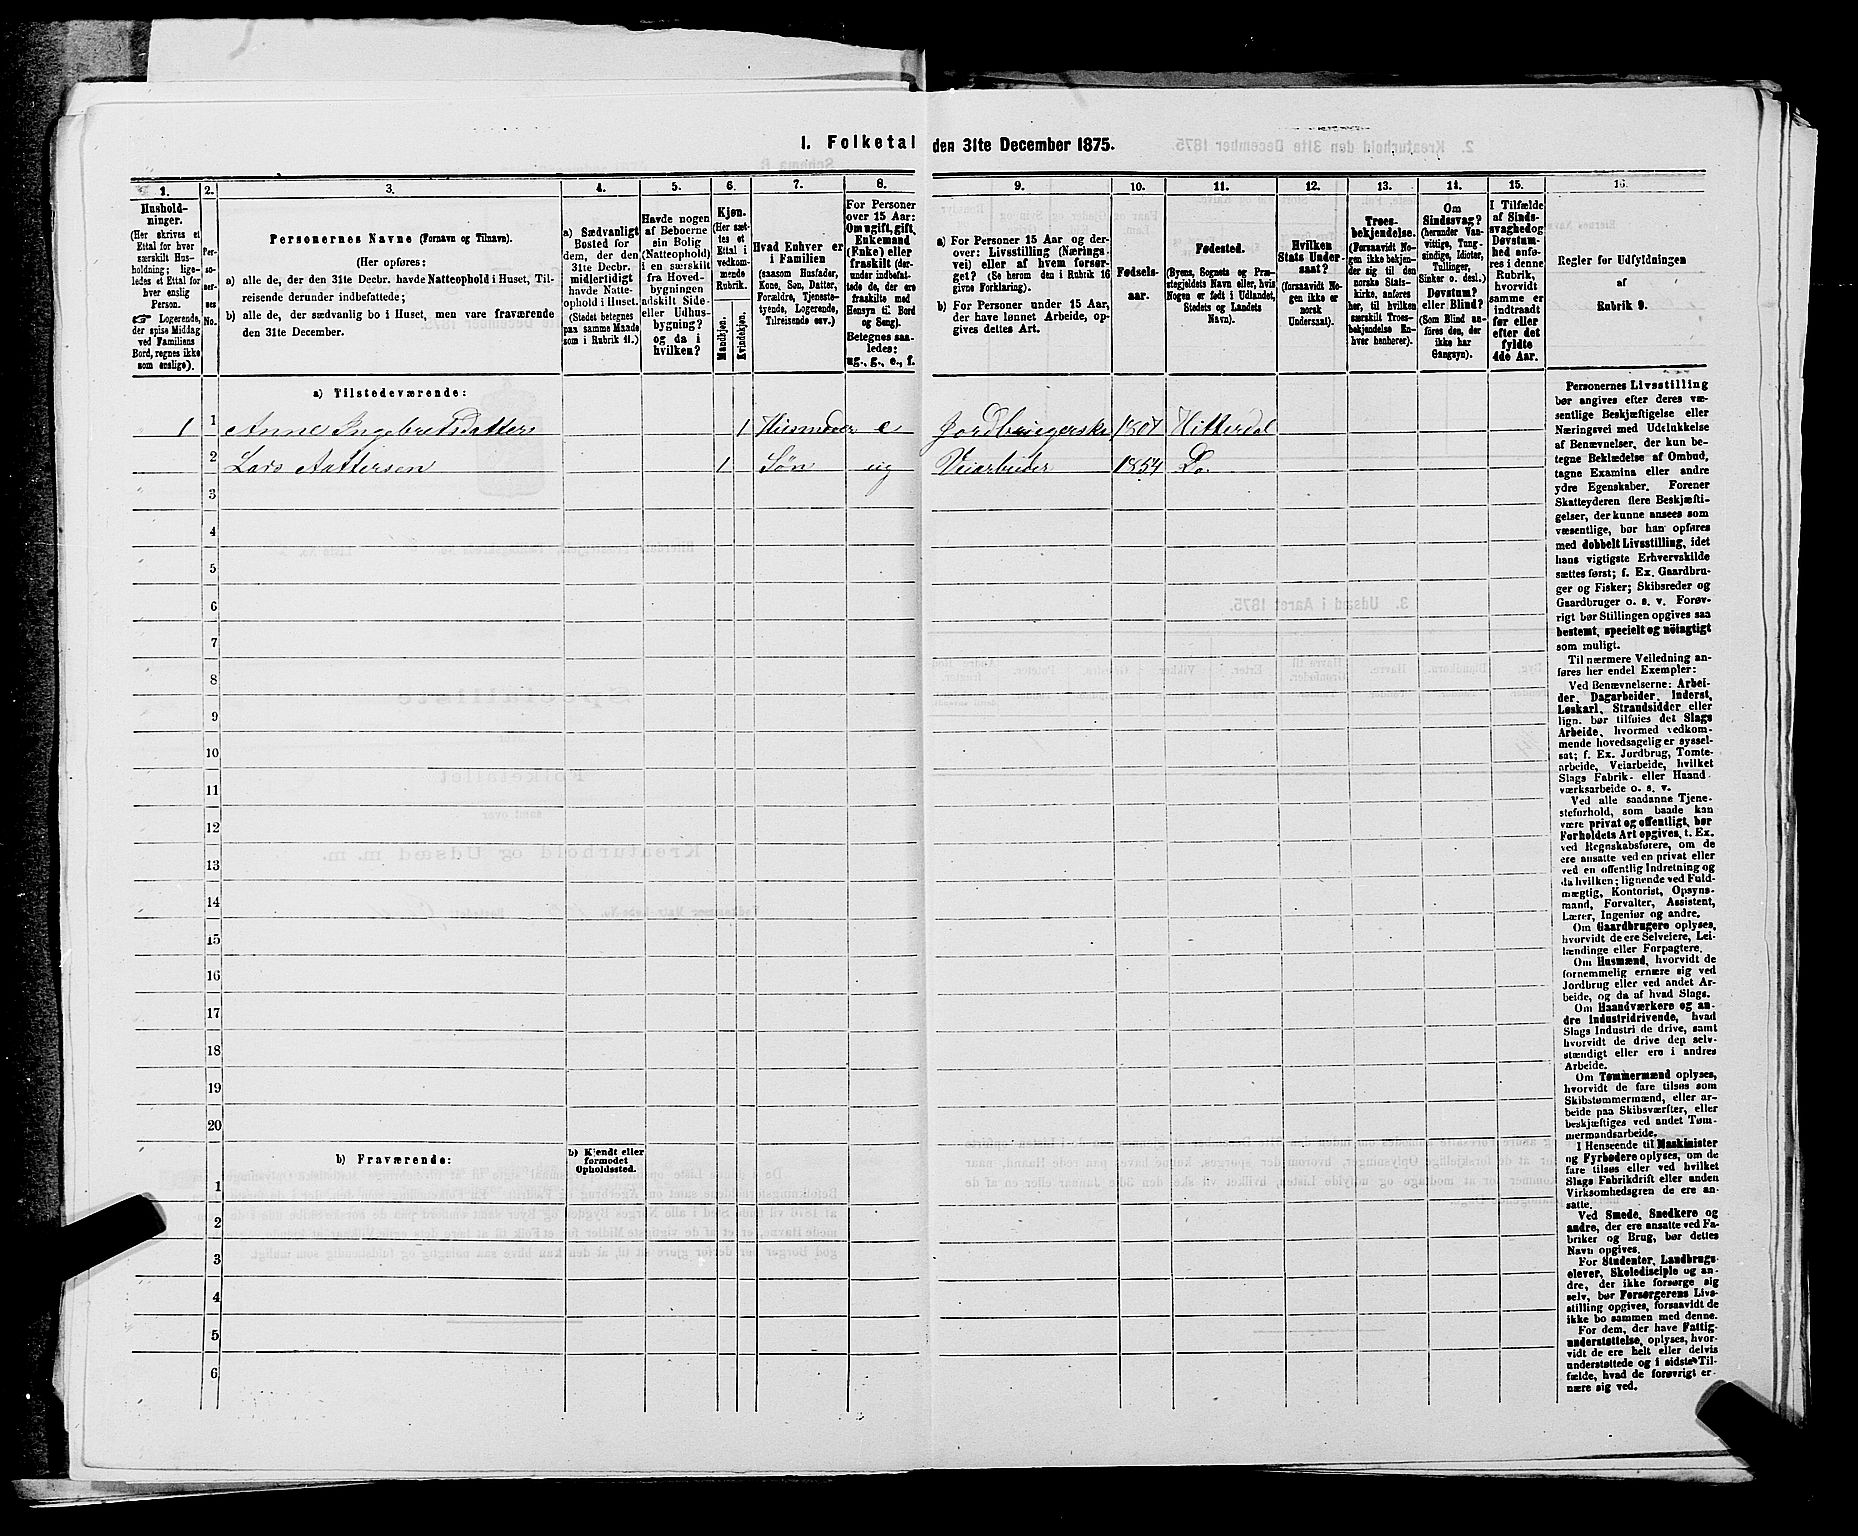 I. Folketal den 31te December 1875.
1.
2.
3.
4.
5.
6.
7.
8.
9.
10.
11.
12.
13.
14.
15.
16.
Hushold-
ninger.
(Her skrives et
Ettal for hver
særskilt Hus-
holdning; lige-
ledes et Ettal for
hver enslig
Person.
☞ Logerende,
der spise Middag
ved Familiens
Bord, regnes ikke
som enslige).
Per-
so-
ner-
nes
No.
Personernes Navne (Fornavn og Tilnavn).
(Her opføres:
a) alle de, der den 31te Decbr. havde Natteophold i Huset, Til-
reisende derunder indbefattede;
b) alle de, der sædvanlig bo i Huset, men vare fraværende
den 31te December.
a) Sædvanligt
Bosted for
dem, der den
31te Decbr.
midlertidigt
havde Natte-
ophold i Huset.
(Stedet betegnes
paa samme Maade
som i Rubrik 11.)
Havde nogen
af Beboerne
sin Bolig
(Natteophold)
i en særskilt
fra Hoved-
bygningen
adskilt Side-
eller Udhus-
bygning?
og da i
hvilken?
Kjøn.
(Her sæt-
tes et
Ettal i
vedkom-
mende
Rubrik.
Mandkjøn.
Kvindekjøn.
Hvad Enhver er
i Familien
(saasom Husfader,
Kone, Søn, Datter,
Forældre, Tjeneste-
tyende, Logerende,
Tilreisende osv.)
For Personer
over 15 Aar:
Om ugift, gift,
Enkemand
(Enke) eller
fraskilt (der-
under indbefat-
tede de, der ere
fraskilte med
Hensyn til Bord
og Seng).
Betegnes saa-
ledes:
ug., g., e., f.
a) For Personer 15 Aar og der-
over: Livsstilling (Nærings-
vei) eller af hvem forsør-
get? (Se herom den i Rubrik 16
givne Forklaring).
b) For Personer under 15 Aar,
der have lønnet Arbeide, op-
gives dettes Art.
Fødsels-
aar.
Fødested.
(Byens, Sognets og Præ-
stegjeldets Navn eller, hvis
Nogen er født i Udlandet,
Stedets og Landets
Navn).
Hvilken
Stats Under-
saat?
(forsaavidt No-
gen ikke er
norsk
Undersaat).
Troes-
bekjendelse.
(Forsaavidt No-
gen ikke bekjen-
der sig til den
norske Stats-
kirke, anføres
her, til hvilken
særskilt Troes-
bekjendelse En-
hver henhører).
Om
Sindssvag?
(herunder Van-
vittige, Tung-
sindige, Idioter,
Tullinger,
Sinker o. desl.)
Døvstum?
eller Blind?
(Som Blind an-
føres den, der
ikke har
Gangsyn).
I Tilfælde
af Sinds-
svaghed og
Døvstum-
hed anfø-
res i denne
Rubrik,
hvorvidt
samme er
indtraadt
før eller
efter det
fyldte
4de Aar.
Regler for Udfyldningen
af
Rubrik 9.
a) Tilstedeværende:
1 1 Anne Ingebretsdatter 1 Husmoder e Jordbrugerske 1807 Hitterdal
2 Lars Aattersen 1 Søn ug Veiarbeider 1854 Do.
3
4
5
6
7
8
9
10
11
12
13
14
15
16
17
18
19
20
b) Fraværende:
b) Kjendt eller
formodet
Opholdssted.
1
2
3
4
5
6
Personernes Livsstilling
bør angives efter deres væ-
sentlige Beskjæftigelse eller
Næringsvei med Udelukkelse
af Benævnelser, der kun be-
tegne Beklædelse af Ombud,
tagne Examina eller andre
ydre Egenskaber. Forener
Skatteyderen flere Beskjæfti-
gelser, der kunne ansees som
væsentlige, bør han opføres
med dobbelt Livsstilling, idet
hans vigtigste Erhvervskilde
sættes først; f. Ex. Gaardbru-
ger og Fisker; Skibsreder og
Gaardbruger o. s. v. Forøv-
rigt bør Stillingen opgives saa
bestemt, specielt og nöiagtigt
som muligt.
Til nærmere Veiledning an-
føres her endel Exempler:
Ved Benævnelserne: Arbei-
der, Dagarbeider, Inderst,
Løskarl, Strandsidder eller
lign. bør tilføies det Slags
Arbeide, hvormed vedkom-
mende hovedsagelig er syssel-
sat; f. Ex. Jordbrug, Tomte-
arbeide, Veiarbeide, hvilket
Slags Fabrik- eller Haand-
værksarbeide o. s. v.
Ved alle saadanne Tjene-
steforhold, som baade kan
være privat og offentligt, bør
Forholdets Art opgives, t. Ex.
ved Regnskabsførere, om de
ere ansatte ved en privat eller
ved en offentlig Indretning og
da hvilken; lignende ved Fuld-
mægtig, Kontorist, Opsyns-
mand, Forvalter, Assistent,
Lærer, Ingeniør og andre.
Om Gaardbrugere oplyses,
hvorvidt de ere Selveiere, Lei-
lændinge eller Forpagtere.
Om Husmænd, hvorvidt de
fornemmelig ernære sig ved
Jordbrug eller ved andet Ar-
beide, og da af hvad Slags.
Om Haandværkere og an-
dre Industridrivende, hvad
Slags Industri de drive, samt
hvorvidt de drive den selv-
stændigt eller ere i andres
Arbeide.
Om Tømmermænd oplyses,
hvorvidt de fare tilsøs som
Skibstømmermænd, eller ar-
beide paa Skibsværfter, eller
beskjæftiges ved andet Tøm-
mermandsarbeide.
I Henseende til Maskinister
og Fyrbødere oplyses, om de
fare tilsøs eller ved hvilket
Slags Fabrikdrift eller anden
Virksomhedsgren de ere an-
satte.
Ved Smede, Snedkere og
andre, der ere ansatte ved Fa-
briker og Brug, bør dettes
Navn opgives.
For Studenter, Landbrugs-
elever, Skoledisciple og an-
dre, der ikke forsørge sig
selv, bør Forsørgerens Livs-
stilling opgives, forsaavidt de
ikke bo sammen med denne.
For dem, der have Fattig-
understøttelse, oplyses, hvor-
vidt de ere helt eller delvis
understøttede og i sidste Til-
fælde, hvad de forøvrigt er-
nære sig ved.